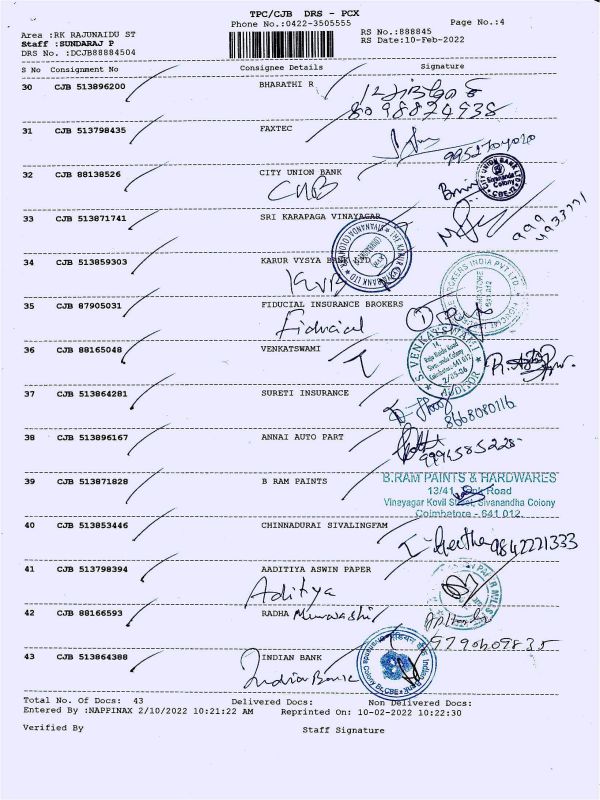 TPC/CJB DRS - PCX
Phone No.:0422-3505555
Page No.:4
Area :RK RAJUNAIDU ST
RS No.:888845
Staff :SUNDARAJ P
RS Date:10-Feb-2022
DRS No. :DCJB88884504
S No Consignment No Consignee Details Signature
30 CJB 513896200 BHARATHI R
8098874938
31 CJB 513798435 FAXTEC
9952704020
32 CJB 88138526 CITY UNION BANK
CUB
CITY UNION BANK LTD
Sivananda
Colony
CBE-12
33 CJB 513871741 SRI KARAPAGA VINAYAGAR
34 CJB 513859303 KARUR VYSYA BANK LTD
KVB
35 CJB 87905031 FIDUCIAL INSURANCE BROKERS
Fiducial
36 CJB 88165048 VENKATSWAMI
S. VENKATSWAMI
AUDITOR
37 CJB 513864281 SURETI INSURANCE
8668080116
38 CJB 513896167 ANNAI AUTO PART
9994585228
39 CJB 513871828 B RAM PAINTS
B.RAM PAINTS & HARDWARES
13/41, Road
Vinayagar Kovil Street, Sivanandha Colony
Coimbatore - 641 012.
40 CJB 513853446 CHINNADURAI SIVALINGFAM
Geetha 9842221333
41 CJB 513798394 AADITIYA ASWIN PAPER
Aditiya
42 CJB 88166593 RADHA
9790609835
43 CJB 513864388 INDIAN BANK
Indian Bank
Total No. Of Docs: 43 Delivered Docs: Non Delivered Docs:
Entered By :NAPPINAX 2/10/2022 10:21:22 AM Reprinted On: 10-02-2022 10:22:30
Verified By Staff Signature